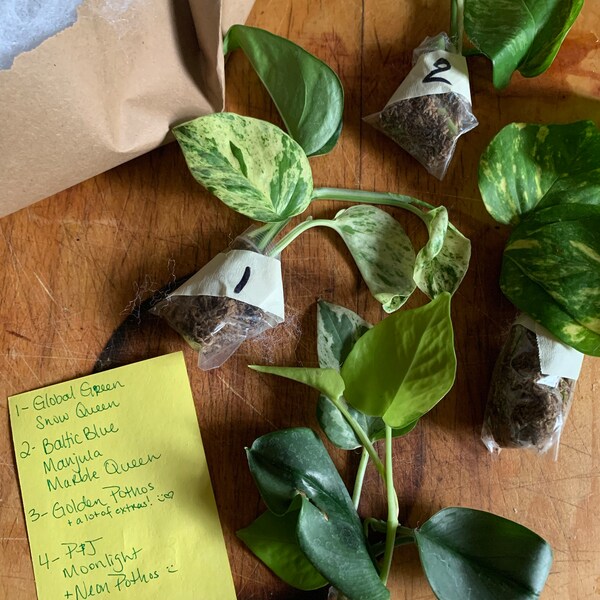 2
1
1- Global Green
Snow Queen
2- Baltic Blue
Manjula
Marble Queen
3- Golden Pothos
+ a lot of extras!
4- P+J
Moonlight
+ Neon Pothos